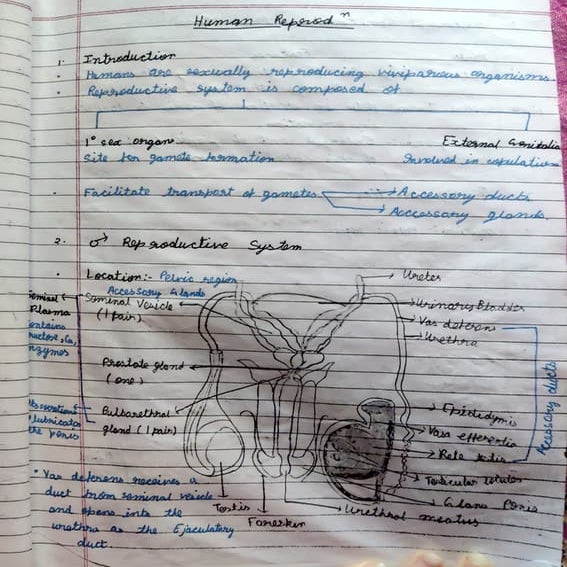 Human Reprodⁿ
1. Introduction
· Humans are sexually reproducing viviparous organisms.
· Reproductive system is composed of
1° sex organs
External Genitalia
Site for gamete formation
Involved in copulation
· Facilitate transport of gametes → Accessory ducts
→ Accessory glands.
2. ♂ Reproductive System
· Location:- Pelvic region
Accessory Glands
Ureter
Seminal Vesicle
(1 pair)
Plasma
Urinary Bladder
Vas deferens
Urethra
Prostate gland
(one)
Bulbourethral
gland (1 pair)
the penis
Accessory ducts
Epididymis
Vasa efferentia
Rete testis
Testicular lobules
Glans Penis
Urethral meatus
Testis
Foreskin
· Vas deferens receives a
duct from seminal vesicle
and opens into the
urethra as the Ejaculatory
duct.